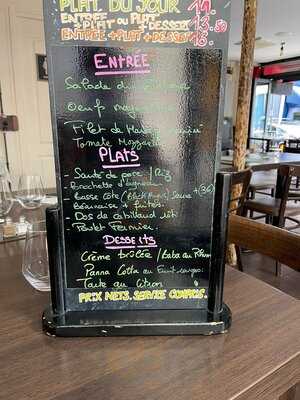 PLAT DU JOUR 11.
ENTRÉE OU PLAT 13.50
+PLAT +DESSERT
ENTRÉE+PLAT+DESSERT 18.
ENTRÉE
Salade du
Oeuf mayonnaise
Filet de Hareng
Tomate Mozza
PLATS
- Sauté de porc / Riz
- Brochette d'agneau
- Basse Côte (Black Angus) Sauce +(3€)
Béarnaise + frites.
- Dos de cabillaud rôti
- Poulet Fermier.
DESSERTS
Crème brûlée / Baba au Rhum
Panna Cotta au Fruit rouges.
Tarte au citron
PRIX NETS. SERVICE COMPRIS.